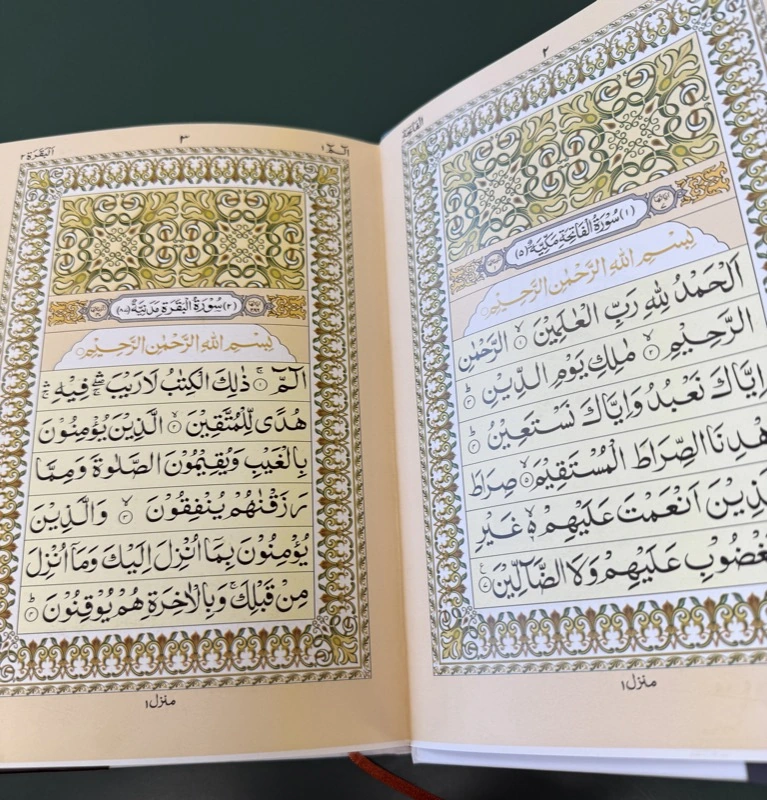 ٢
الفاتحة
(١) سُوْرَةُ الْفَاتِحَةِ مَكِّيَّةٌ (٥)
بِسْمِ اللهِ الرَّحْمٰنِ الرَّحِيْمِ
اَلْحَمْدُ لِلّٰهِ رَبِّ الْعٰلَمِيْنَ ۙ‏﴿۱﴾ الرَّحْمٰنِ
الرَّحِيْمِ ۙ‏﴿۲﴾ مٰلِكِ يَوْمِ الدِّيْنِ ؕ‏﴿۳﴾
اِيَّاكَ نَعْبُدُ وَاِيَّاكَ نَسْتَعِيْنُ ؕ‏﴿۴﴾
هْدِنَا الصِّرَاطَ الْمُسْتَقِيْمَ ۙ‏﴿۵﴾ صِرَاطَ
ذِيْنَ اَنْعَمْتَ عَلَيْهِمْ ۙ۬ غَيْرِ
غْضُوْبِ عَلَيْهِمْ وَلَا الضَّآلِّيْنَ ﴿۷﴾
منزل ١
٣
الٓمّٓ ١
اَلْبَقَرَة ٢
(٢) سُوْرَةُ الْبَقَرَةِ مَدَنِيَّةٌ (٨٧)
بِسْمِ اللهِ الرَّحْمٰنِ الرَّحِيْمِ
الٓمّٓ ۚ‏﴿۱﴾ ذٰلِكَ الْكِتٰبُ لَا رَيْبَ ۛۖۚ فِيْهِ ۛۚ
هُدًى لِّلْمُتَّقِيْنَ ۙ‏﴿۲﴾ الَّذِيْنَ يُؤْمِنُوْنَ
بِالْغَيْبِ وَيُقِيْمُوْنَ الصَّلٰوةَ وَمِمَّا
رَزَقْنٰهُمْ يُنْفِقُوْنَ ۙ‏﴿۳﴾ وَالَّذِيْنَ
يُؤْمِنُوْنَ بِمَآ اُنْزِلَ اِلَيْكَ وَمَآ اُنْزِلَ
مِنْ قَبْلِكَ ۚ وَبِالْاٰخِرَةِ هُمْ يُوْقِنُوْنَ ؕ‏﴿۴﴾
منزل ١